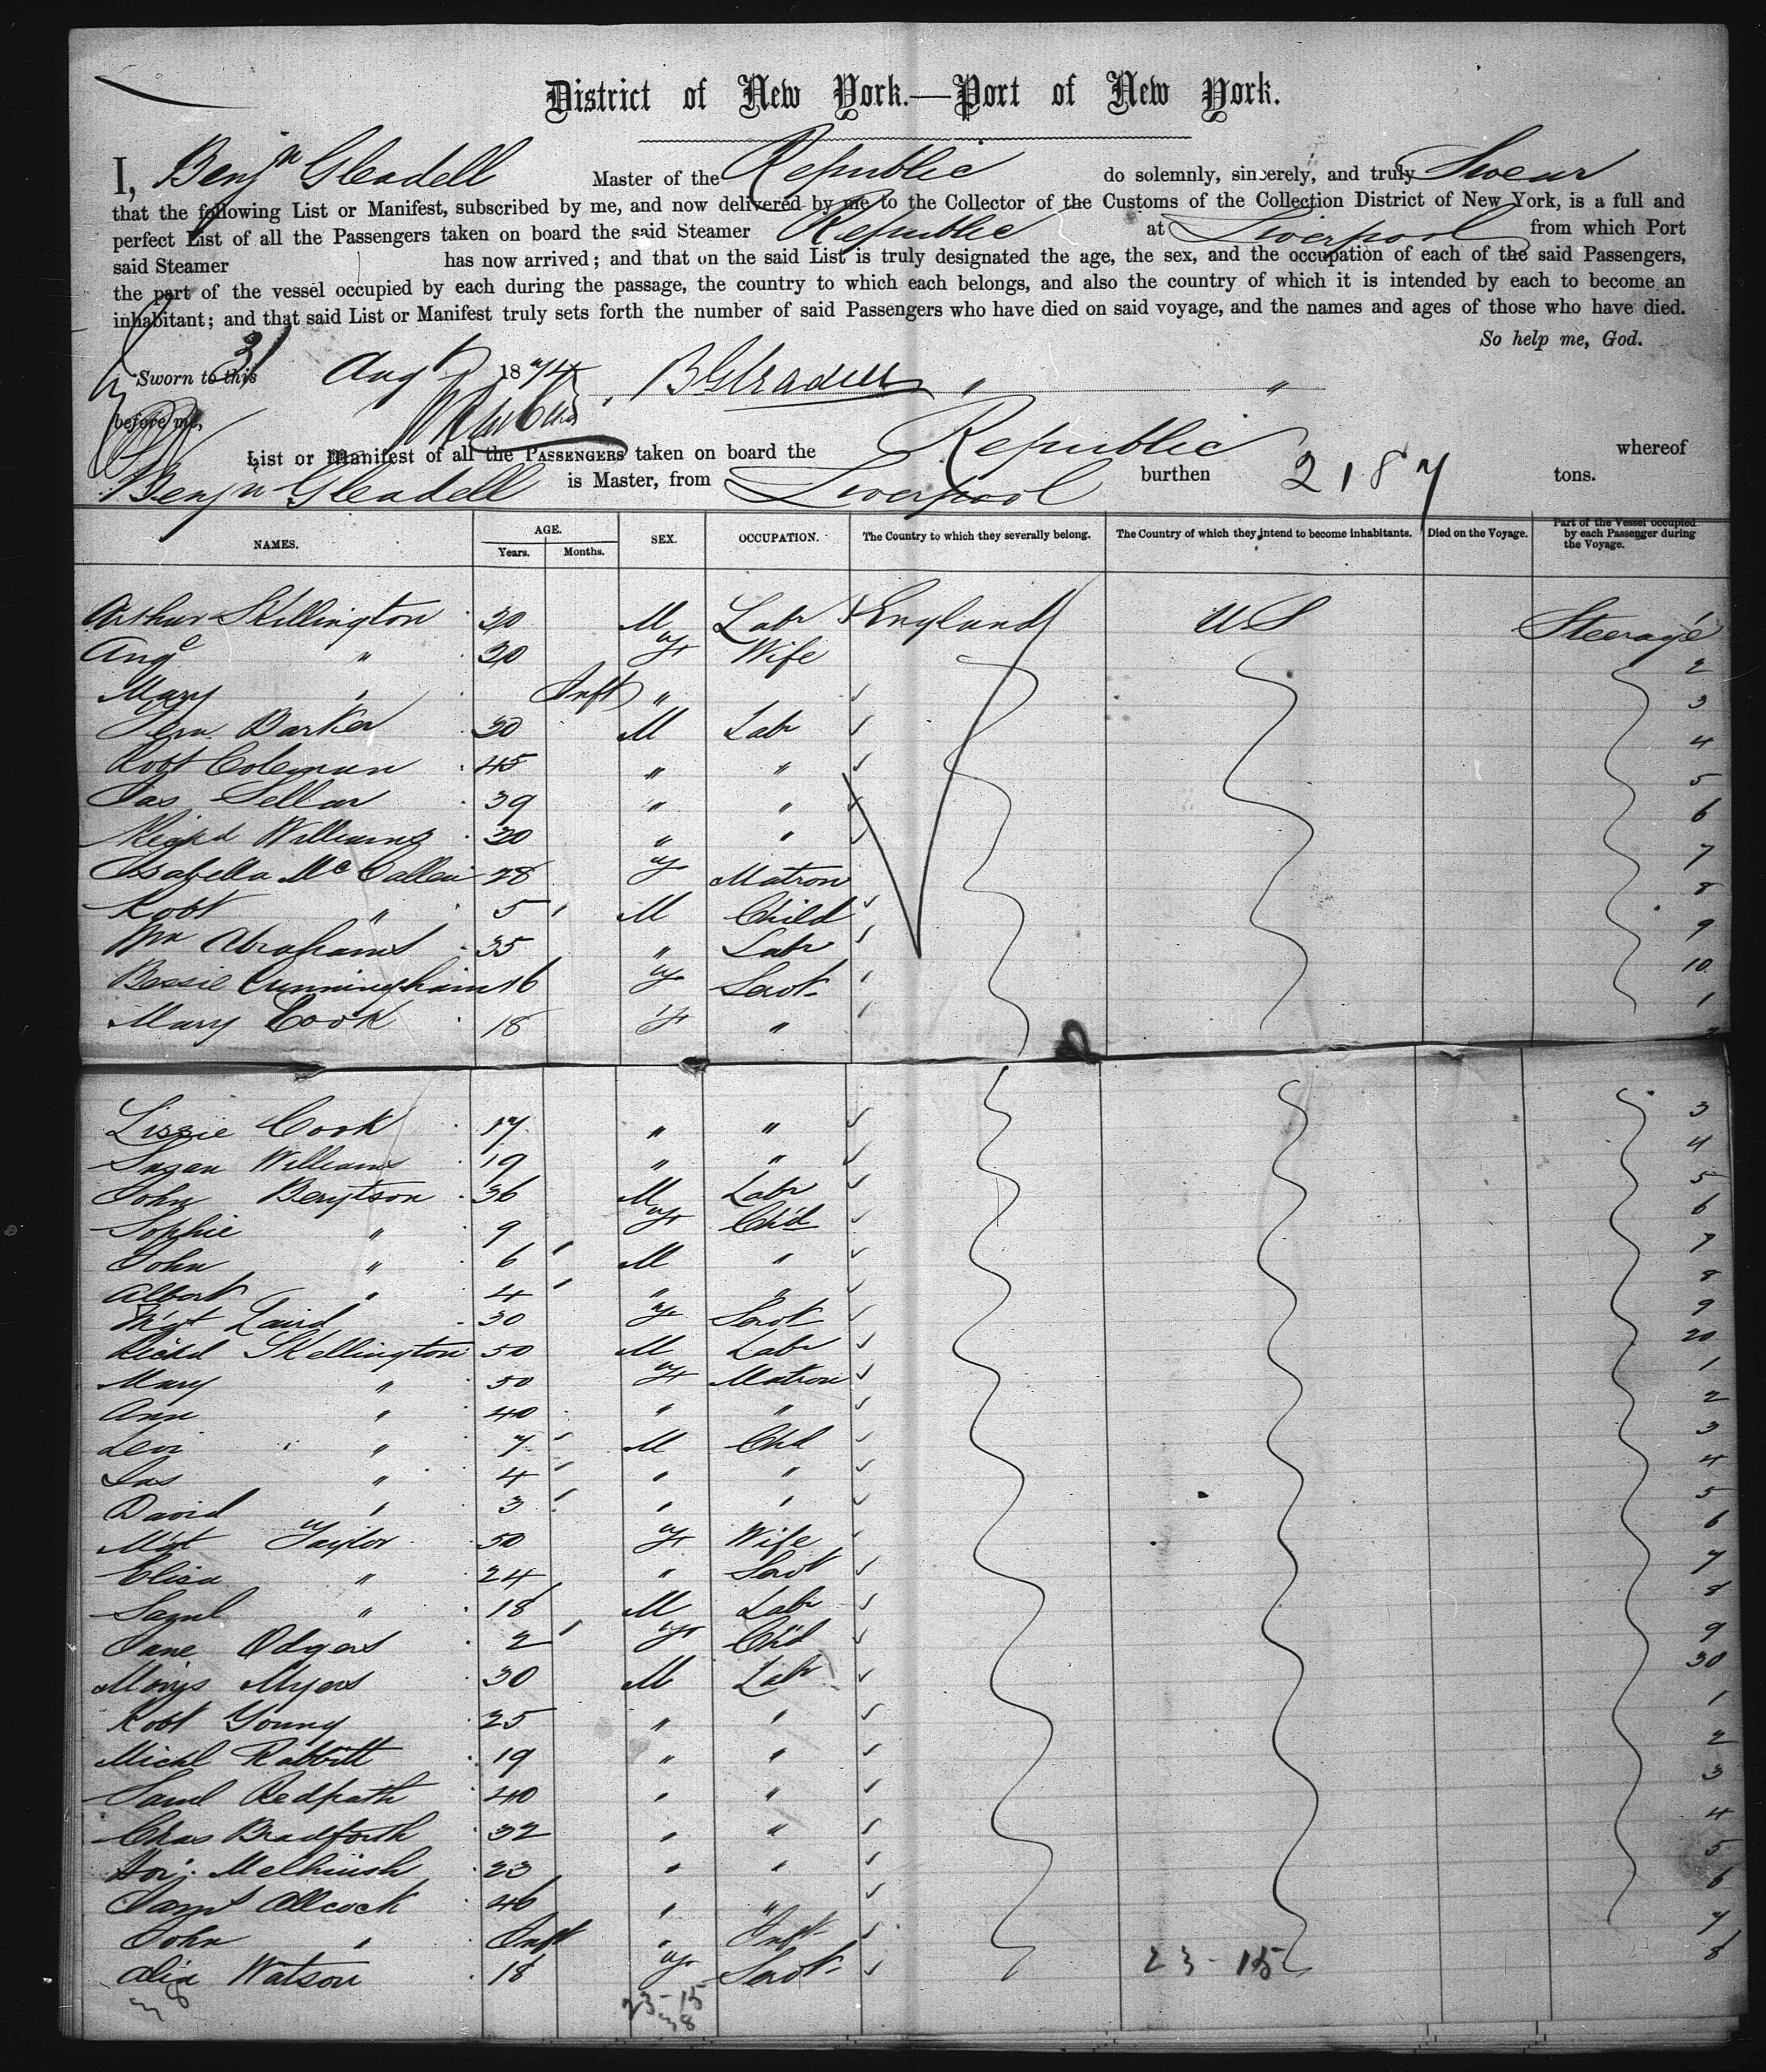 District of New York.—Port of New York.
I, Benjn Gleadell Master of the Republic do solemnly, sincerely, and truly Swear
that the following List or Manifest, subscribed by me, and now delivered by me to the Collector of the Customs of the Collection District of New York, is a full and
perfect List of all the Passengers taken on board the said Steamer Republic at Liverpool from which Port
said Steamer has now arrived; and that on the said List is truly designated the age, the sex, and the occupation of each of the said Passengers,
the part of the vessel occupied by each during the passage, the country to which each belongs, and also the country of which it is intended by each to become an
inhabitant; and that said List or Manifest truly sets forth the number of said Passengers who have died on said voyage, and the names and ages of those who have died.
So help me, God.
Sworn to this 31 Aug 1874 BGleadell " "
before me,
List or Manifest of all the PASSENGERS taken on board the Republic whereof
Benjn Gleadell is Master, from Liverpool burthen 2187 tons.
NAMES. AGE. Years. Months. SEX. OCCUPATION. The Country to which they severally belong. The Country of which they intend to become inhabitants. Died on the Voyage. Part of the Vessel occupied by each Passenger during the Voyage.
Arthur Skillington 30 M Labr England U S Steerage 1
Ange " 30 F Wife 2
Mary " Inft " 3
Barker 30 M Labr 4
Robt Coleman 45 " " 5
Jas Sellar 39 " " 6
Richd Williams 30 " " 7
Isabella McCallen 28 F Matron 8
Robt " 5 M Child 9
Wm Abrahams 35 " Labr 10
Bessie Cunningham 16 F Servt 1
Mary Cook 18 F " 2
Lizzie Cook 17 " " 3
Susan Williams 19 " " 4
John Berytson 36 M Labr 5
Sophie " 9 F Ch'd 6
John " 6 M " 7
Albert " 4 " " 8
Mgt Laird 30 F Servt 9
Richd Skellington 50 M Labr 20
Mary " 50 F Matron 1
Ann " 40 " " 2
Levi " 7 M Chd 3
Jas " 4 " " 4
David " 3 " " 5
Mgt Taylor 50 F Wife 6
Eliza " 24 " Servt 7
Saml " 18 M Labr 8
Jane Odgers 2 F Ch'd 9
Myers 30 M Labr 30
Robt Young 25 " " 1
Michl Rabbitt 19 " " 2
Saml Redpath 40 " " 3
Chas Bradforth 32 " " 4
Melhuish 23 " " 5
Saml Allcock 46 " " 6
John " Inft " Inft 7
Watson 18 F Servt 8
38 23-15 23-15
38